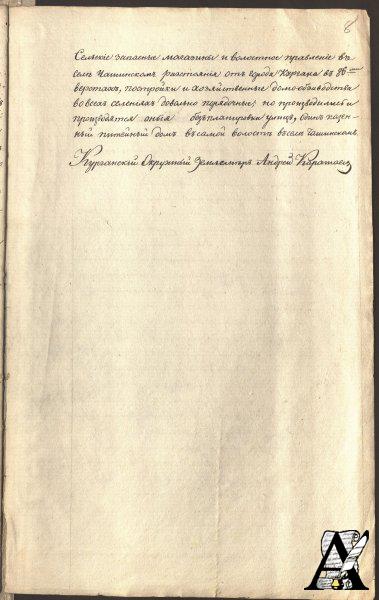 8
Сельскіе запасные магазины и волостное правленіе въ
селѣ Чашинскомъ разстоянія отъ города Кургана въ 36
верстахъ, постройки и хозяйственные домообзаводства
во всѣхъ селеніяхъ довольно порядочные, но производились и
производятся оныя безъ планировки улицъ, одинъ казен-
ный питейный домъ въ самой волости въ селѣ Чашинскомъ.
Курганскій Окружный Землемѣръ Андрей Каратаев